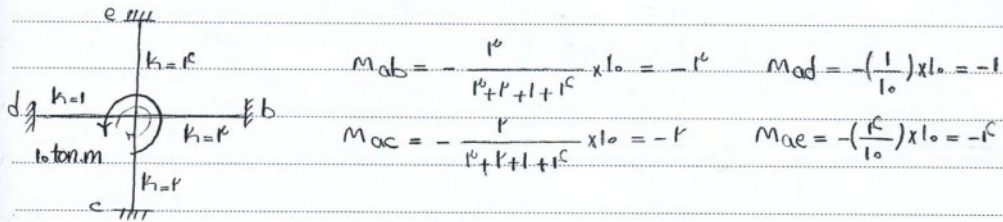 e
k=۴
d k=۱ k=۳ b
۱۰ ton.m
k=۲
c
Mab = - ۳ / ۳+۲+۱+۴ × ۱۰ = -۳ Mad = -(۱/۱۰)×۱۰ = -۱
Mac = - ۲ / ۳+۲+۱+۴ × ۱۰ = -۲ Mae = -(۴/۱۰)×۱۰ = -۴